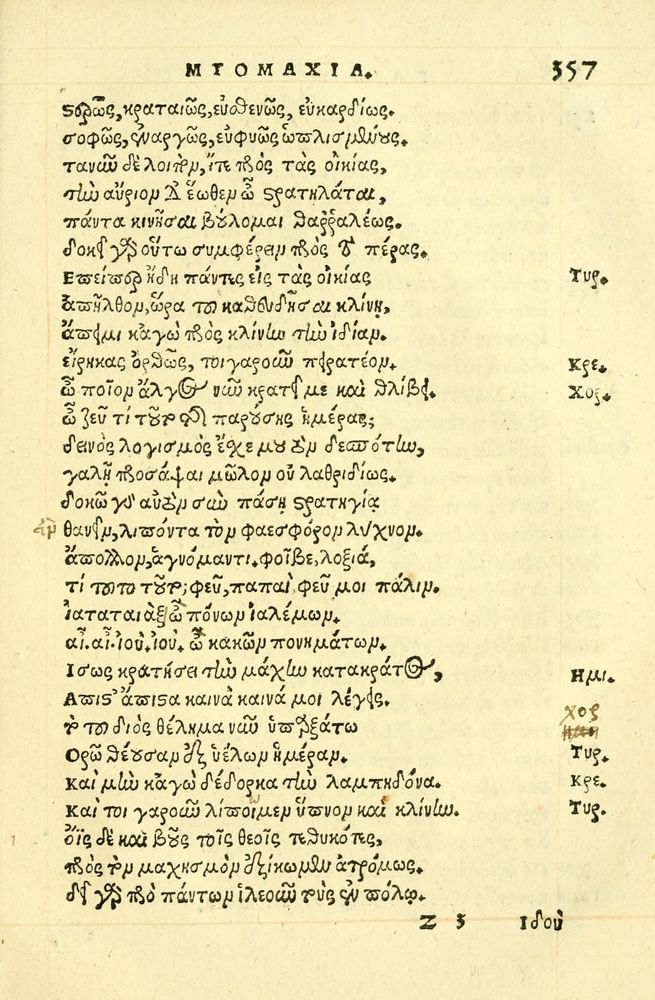 ΜΥΟΜΑΧΙΑ. 357
στερρῶς, κραταιῶς, εὐσθενῶς, εὐκαρδίως.
σοφῶς, ἐναργῶς, εὐφυῶς ὡπλισμένους.
τανῦν δὲ λοιπὸν, ἴτε πρὸς τὰς οἰκίας,
τὴν αὔριον δ' ἕωθεν ὦ στρατηλάται,
πάντα κινῆσαι βούλομαι θαρραλέως.
δοκεῖ γὰρ οὕτω συμφέρειν πρὸς τὸ πέρας.
Ἐπείπερ ἤδη πάντες εἰς τὰς οἰκίας Τυρ.
ἀπῆλθον, ὥρα τοῦ καθευδῆσαι κλίνῃ,
ἄπειμι κἀγὼ πρὸς κλίνην τὴν ἰδίαν.
εἴρηκας ὀρθῶς, τοιγαροῦν πειρατέον. Κρε.
ὦ ποῖον ἄλγος νῦν κρατεῖ με καὶ θλίβει. Χορ.
ὦ ζεῦ τί τοὖργον παρούσης ἡμέρας;
δεινὸς λογισμὸς ἔσχε μου τὸν δεσπότην,
γαλῇ προσάψαι μῶλον οὐ λαθριδίως.
δοκῶ γὰρ αὐτὸν σὺν πάσῃ στρατηγίᾳ
θανεῖν, λιπόντα τὸν φαεσφόρον λύχνον.
ἄπολλον, ἁγνόμαντι. φοῖβε, λοξία,
τί τοῦτο τοὖργον; φεῦ, παπαὶ φεῦ μοι πάλιν.
ἰαταταιὰξ ὦ πόνων ἰαλέμων.
αἲ. αἲ. ἰού. ἰού. ὦ κακῶν πονημάτων.
Ἴσως κρατήσει τὴν μάχην κατακράτος, Ημι.
Ἄπιστ' ἄπιστα καινὰ καινά μοι λέγεις.
τὸ τοῦ διὸς θέλημα νῦν ὑπαρξάτω χορ
Ὁρῶ θέουσαν ἐξ ὑέλων ἡμέραν. Τυρ.
Καὶ μὴν κἀγὼ δέδορκα τὴν λαμπηδόνα. Κρε.
Καὶ τοι γαροῦν λίποιμεν ὕπνον καὶ κλίνην. Τυρ.
ὄϊς δὲ καὶ βοῦς τοῖς θεοῖς τεθυκότες,
πρὸς τὸν μαχησμὸν ἐξίκωμεν ἀτρόμως.
δεῖ γὰρ πρὸ πάντων ἱλεοῦν τοὺς ἐν πόλῳ.
Z 3 Ἰδοὺ